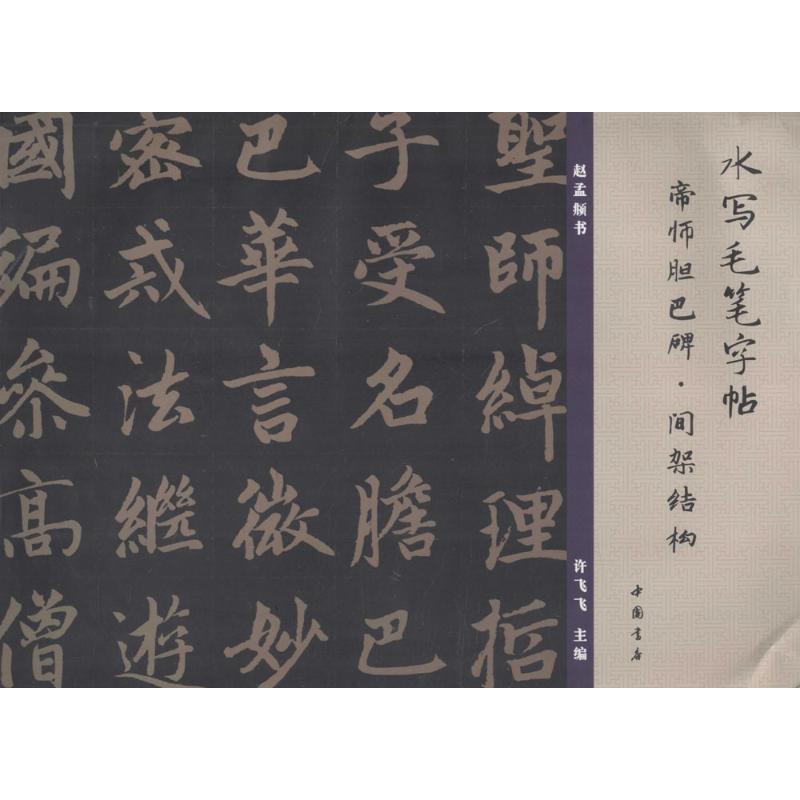 水写毛笔字帖
帝师胆巴碑·间架结构
中国书店
赵孟𫖯书
许飞飞 主编
聖師綽理哲
子受名膽巴
巴華言微妙
密戒法繼遊
國徧參高僧